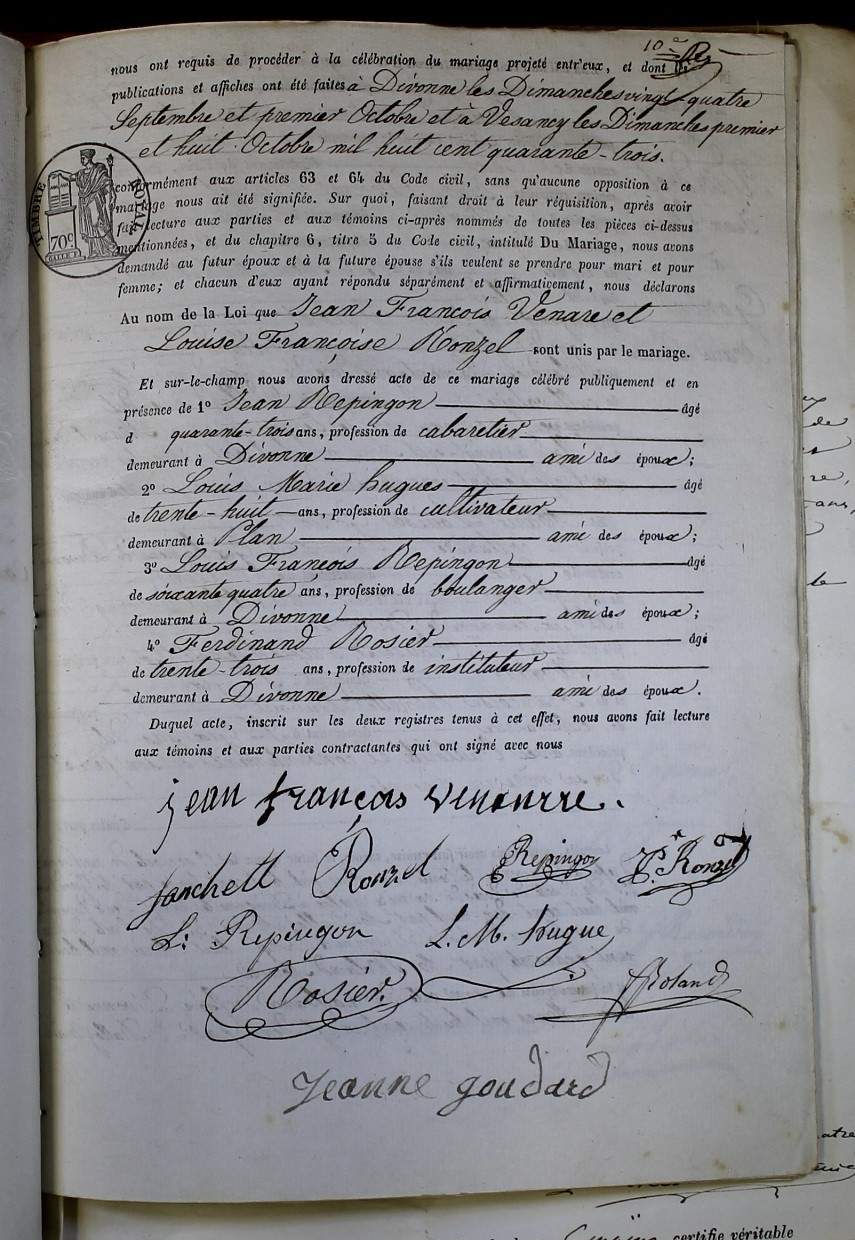 10e
nous ont requis de procéder à la célébration du mariage projeté entr'eux, et dont les
publications et affiches ont été faites à Divonne les Dimanches vingt-quatre
Septembre et premier Octobre et à Vesancy les Dimanches premier
et huit Octobre mil huit cent quarante-trois.
conformément aux articles 63 et 64 du Code civil, sans qu'aucune opposition à ce
mariage nous ait été signifiée. Sur quoi, faisant droit à leur réquisition, après avoir
fait lecture aux parties et aux témoins ci-après nommés de toutes les pièces ci-dessus
mentionnées, et du chapitre 6, titre 5 du Code civil, intitulé Du Mariage, nous avons
demandé au futur époux et à la future épouse s'ils veulent se prendre pour mari et pour
femme; et chacun d'eux ayant répondu séparément et affirmativement, nous déclarons
TIMBRE ROYAL
70c
Au nom de la Loi que Jean François Venare et
Louise Françoise Ronzel sont unis par le mariage.
Et sur-le-champ nous avons dressé acte de ce mariage célébré publiquement et en
présence de 1º Jean Repingon âgé
d quarante-trois ans, profession de cabaretier
demeurant à Divonne ami des époux;
2º Louis Marie hugues âgé
de trente-huit ans, profession de cultivateur
demeurant à Plan ami des époux;
3º Louis François Repingon âgé
de soixante quatre ans, profession de boulanger
demeurant à Divonne ami des époux;
4º Ferdinand Rosier âgé
de trente-trois ans, profession de instituteur
demeurant à Divonne ami des époux.
Duquel acte, inscrit sur les deux registres tenus à cet effet, nous avons fait lecture
aux témoins et aux parties contractantes qui ont signé avec nous
jean françois venanrre.
fanchett Ronzel Repingon Ronzel
L: Repingon L. M. hugue
Rosier. Roland
Jeanne goudard
certifie véritable